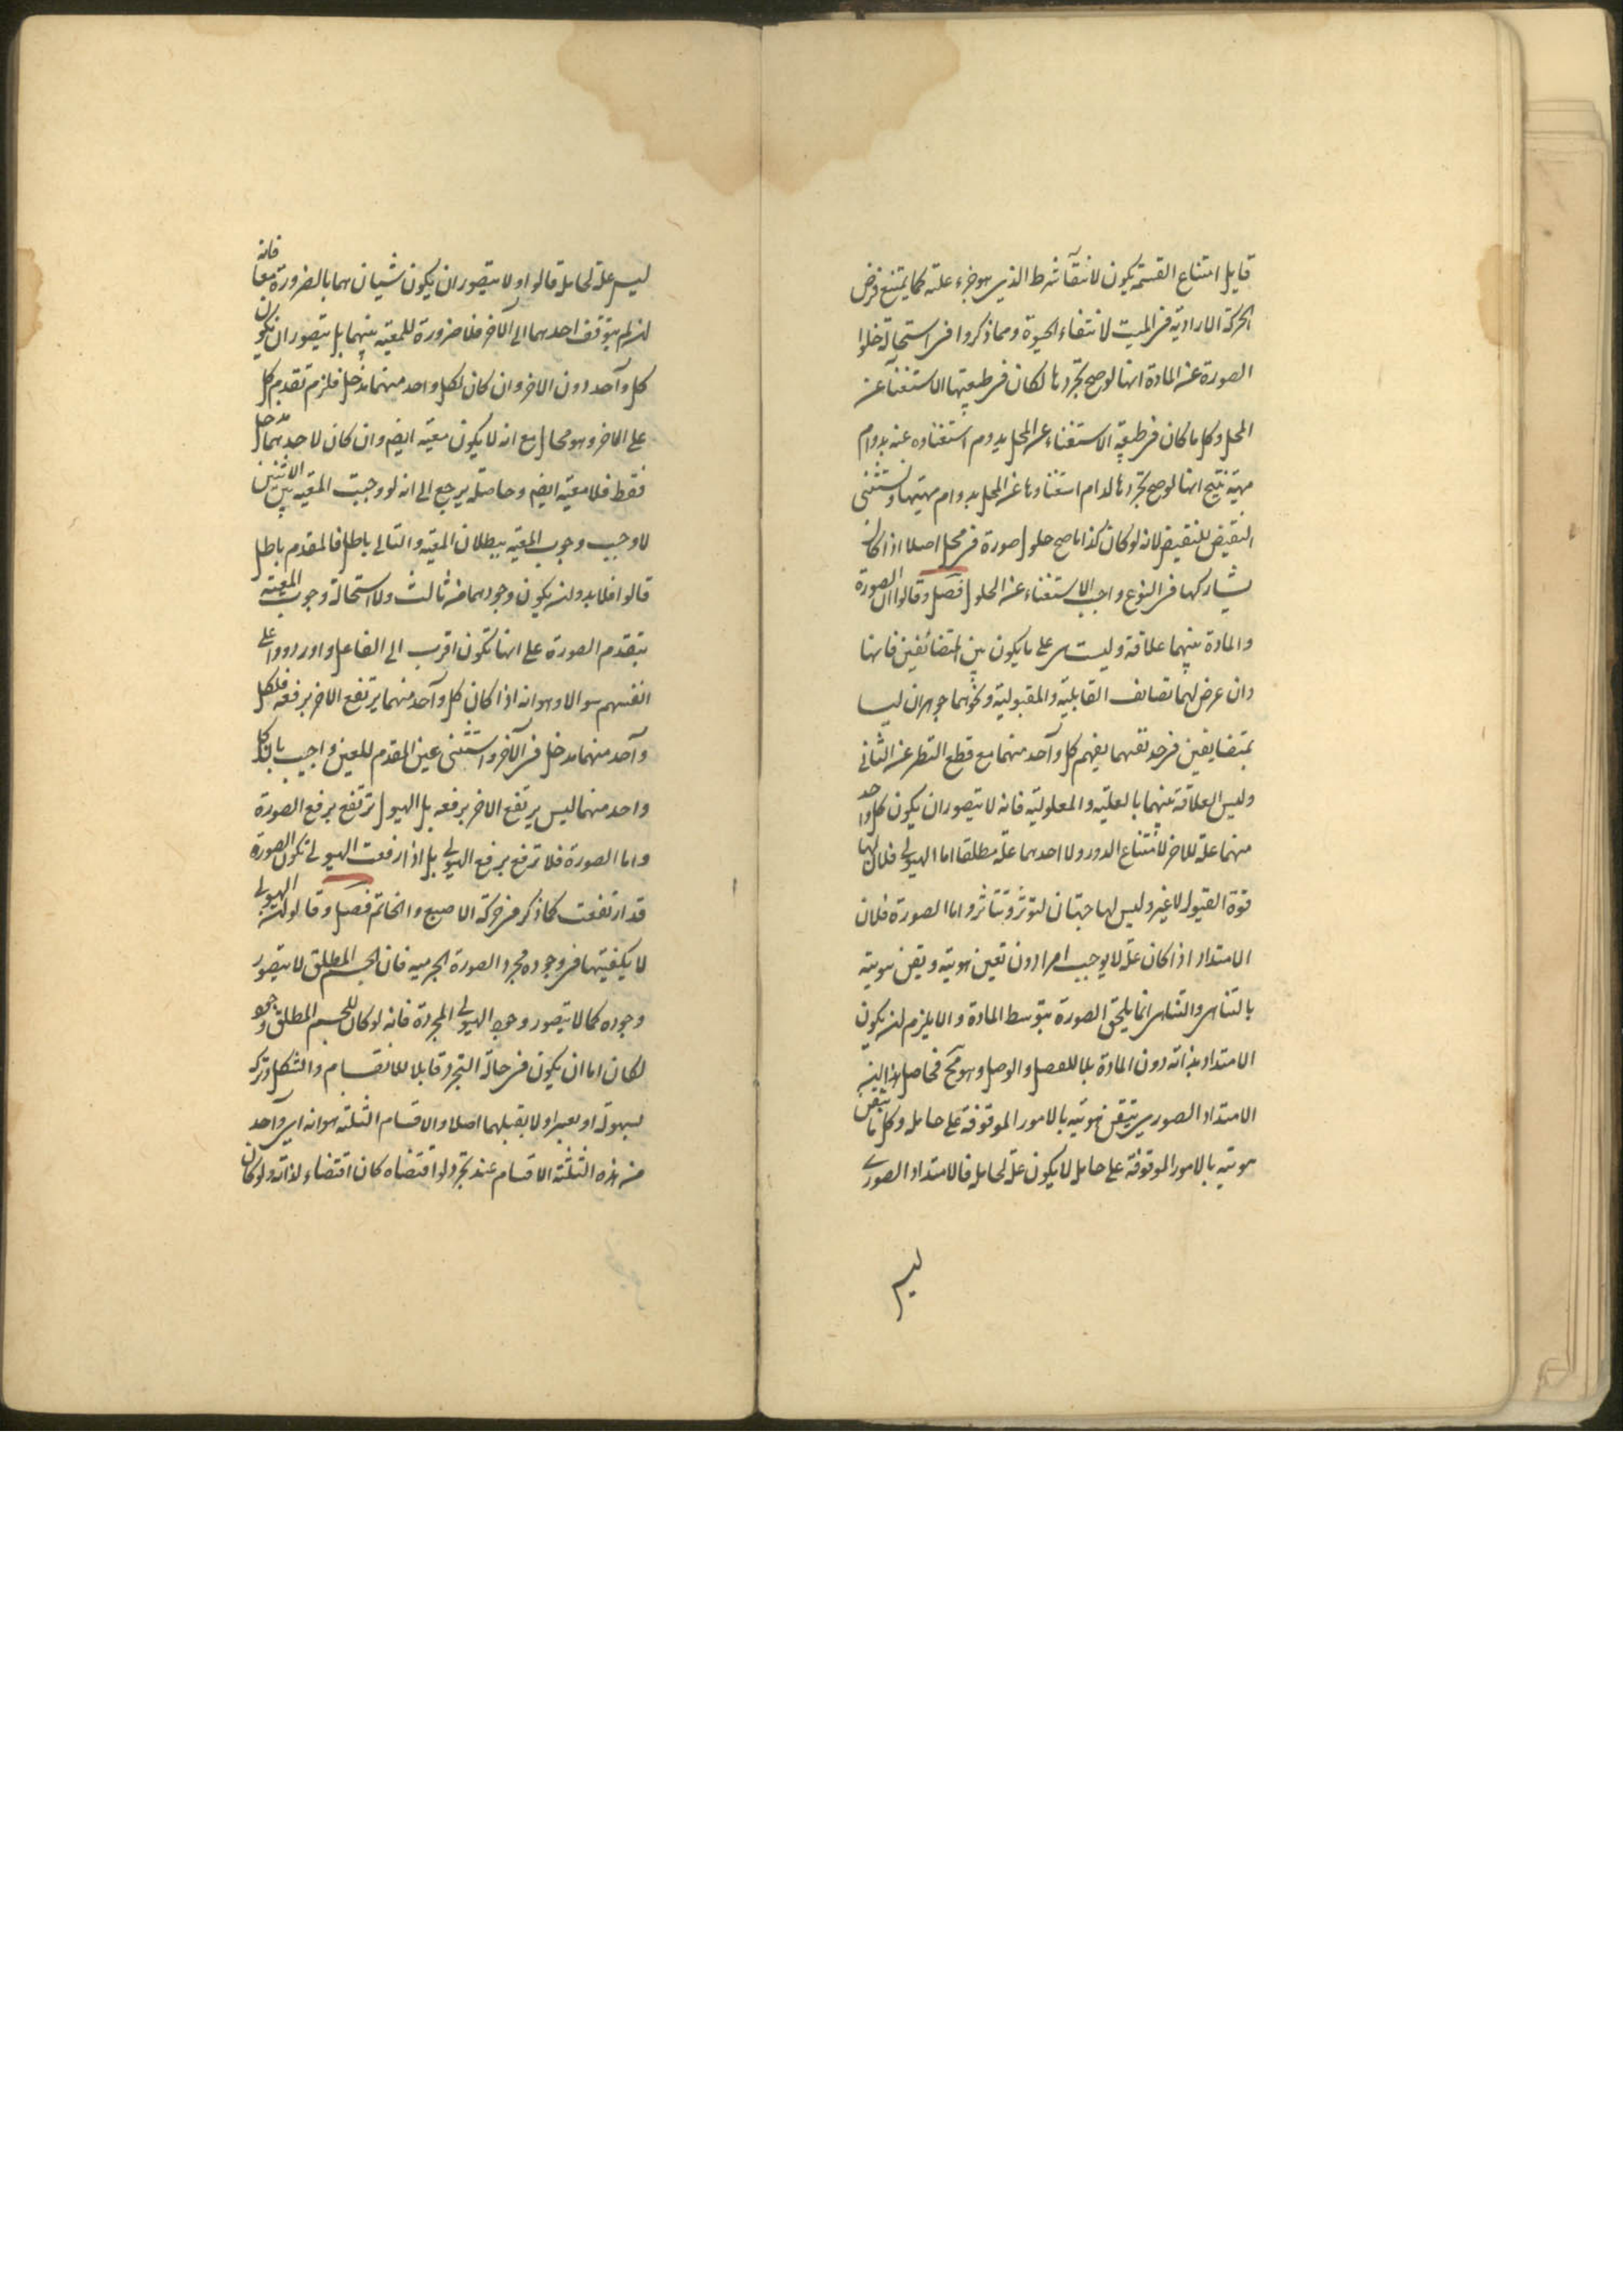 قايل امتناع القسمة يكون لانتفآ شرط الذي هو جزء علته كما يمتنع فرض
الحركة الارادية في الميت لانتفاء الحيوة ومما ذكروا في استحالة خلو
الصورة عن المادة انها لو صح تجردها لكان في طبيعتها الاستغنآ عن
المحل وكل ما كان في طبيعة الاستغناء عن المحل يدوم استغناوه عنه بدوام
مهيته ينتج انها لو صح تجردها لدام استغناوها عن المحل بدوام مهيتها ويستثنى
النقيض للنقيض لانه لو كان كذا ما صح حلول صورة في محل اصلا اذا كان
يشاركها في النوع واجب الاستغناء عن الحلول فصل وقالوا ان الصورة
والمادة بينهما علاقة وليست هي على ما يكون بين المتضائفين فانها
وان عرض لهما تضائف القابلية والمقبولية ونحوهما جوهران ليسا
بمتضايفين في حد نفسهما يفهم كل وآحد منهما مع قطع النظر عن الثاني
وليس العلاقة بينهما بالعلية والمعلولية فانه لا يتصور ان يكون كل واحد
منهما علة للاخر لامتناع الدور ولا احدهما علة مطلقا اما الهيولى فلان لها
قوة القبول لا غير وليس لها جهتان لتوثر وتتاثر واما الصورة فلان
الامتداد اذا كان علة لا يوجب امرا دون تعين هويته وتعين هويته
بالتناهي والتناهي انما يلحق الصورة بتوسط المادة والا يلزم ان يكون
الامتداد بذاته دون المادة قابلا للفصل والوصل وهو مح فحاصل هذا ان
الامتداد الصوري يتعين هويته بالامور الموقوفة على حامل وكل ما يتعين
هويته بالامور الموقوفة على حامل لا يكون علة لحامل فالامتداد الصوري
ليس
ليس علة لحامله قالوا ولا يتصور ان يكون شيئان هما بالضرورة معا فانه
ان لم يتوقف احدهما الى الآخر فلا ضرورة للمعية بينهما بل يتصور ان يكون
كل وآحد دون الاخر وان كان لكل واحد منهما مدخل فلزم تقدم كل
على الاخر وهو محال مع انه لا يكون معية ايضا وان كان لاحدهما مدخل
فقط فلا معية ايضا وحاصله يرجع الى انه لو وجبت المعية بين الاثنين
لاوجب وجوب المعية بطلان المعية والتالي باطل فالمقدم باطل
قالوا فلا بد وان يكون وجودهما من ثالث ولاستحالة وجوب المعية
بتقدم الصورة على انها تكون اقرب الى الفاعل واوردوا على
انفسهم سوالا وهو انه اذا كان كل وآحد منهما يرتفع الاخر برفعه فلكل
وآحد منهما مدخل في الآخر واستثنى عين المقدم للعين واجيب بان كل
واحد منهما ليس يرتفع الاخر برفعه بل الهيولى ترتفع برفع الصورة
واما الصورة فلا ترفع برفع الهيولى بل اذا رفعت الهيولى تكون الصورة
قد ارتفعت كما ذكر في حركة الاصبع والخاتم فصل وقالوا ان الهيولى
لا يكفيها في وجوده مجرد الصورة الجرمية فان الجسم المطلق لا يتصور
وجوده كما لا يتصور وجود الهيولى المجردة فانه لو كان للجسم المطلق وجود
لكان اما ان يكون في حالة التجرد قابلا للانقسام والتشكل وتركه
بسهولة او بعسر او لا يقبلهما اصلا والاقسام الثلثة هو انه اي وآحد
من هذه الثلثة الاقسام عند تجرده لو اقتضاه كان اقتضاء لذاته ولو كان